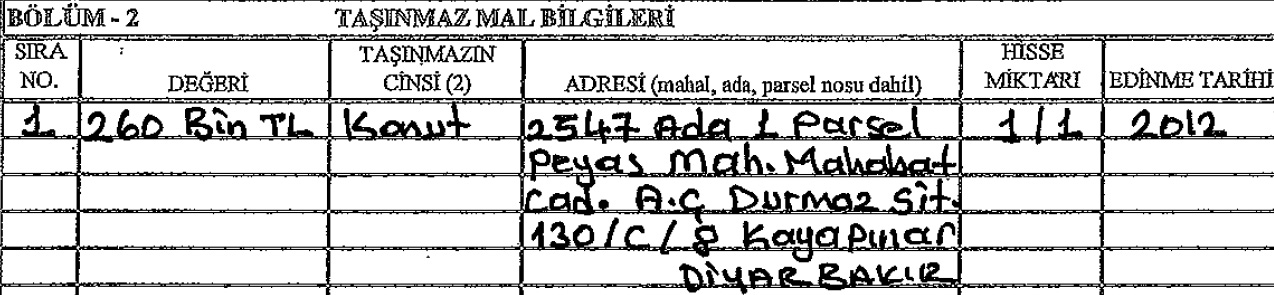 BÖLÜM - 2 TAŞINMAZ MAL BİLGİLERİ
SIRA NO. DEĞERİ TAŞINMAZIN CİNSİ (2) ADRESİ (mahal, ada, parsel nosu dahil) HİSSE MİKTARI EDİNME TARİHİ
1 260 Bin TL Konut 2547 Ada 1 Parsel 1/1 2012
Peyas Mah. Mahabat
Cad. A.Ç Durmaz Sit.
130/C/8 Kayapınar
DİYARBAKIR